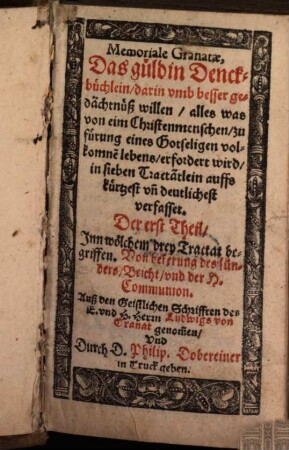 Memoriale Granatæ,
Das güldin Denck-
büchlein/darin vmb besser ge-
dächtnüß willen / alles was
von eim Christenmenschen/zu
fürung eines Gotseligen vol-
komnē lebens/erfordert wird/
in sieben Tractätlein auffs
kürtzest vñ deutlichest
verfasset.
Der erst Theil/
Inn wölchem drey Tractat be-
griffen. Von bekerung des sün-
ders/Beicht/vnd der H.
Communion.
Auß den Geistlichen Schrifften des
E. vnd H. Herrn Ludwigs von
Granat genom̄en/
Vnd
Durch D. Philip. Dobereiner
in Truck geben.